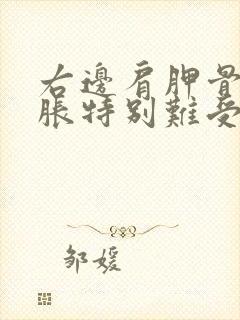 右邊肩胛骨
脹特別難受
邹媛